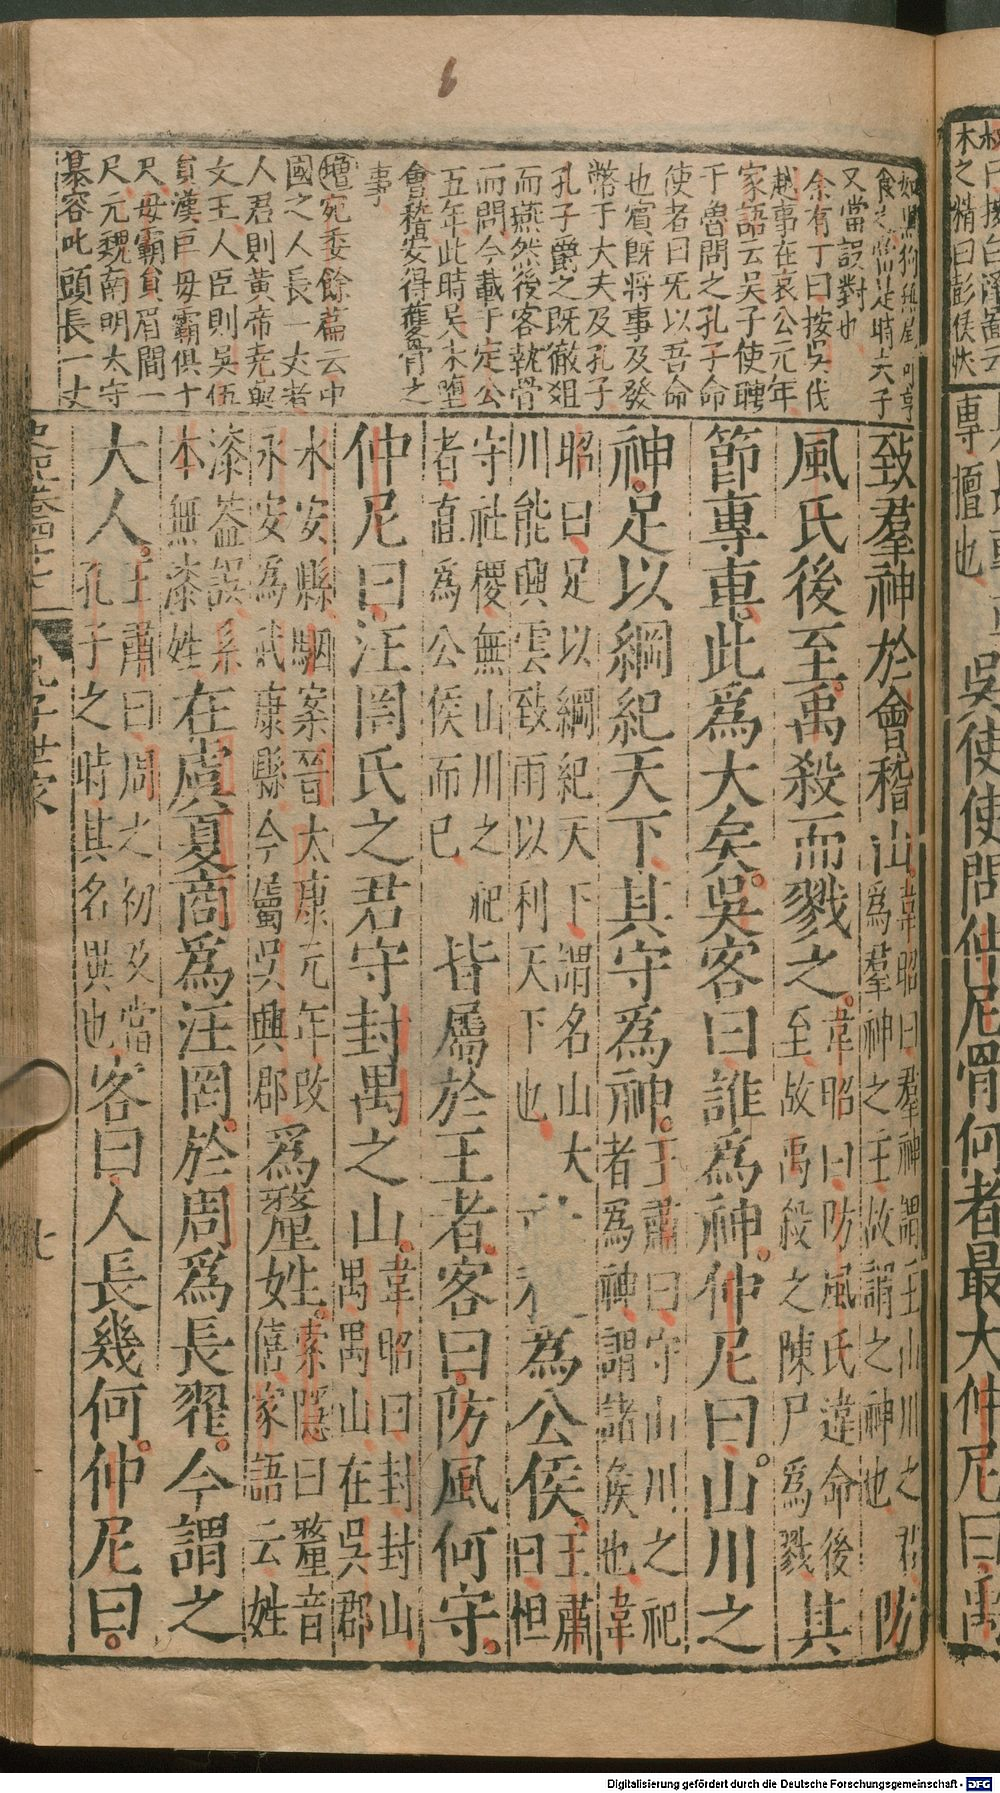 6
木之精曰彭侯
專擅也
吳使使問仲尼骨何者最大仲尼曰禹
又當誤對也
余有丁曰按吳伐
越事在哀公元年
家語云吳子使聘
于魯問之孔子命
使者曰无以吾命
也賓既將事及發
幣于大夫及孔子
孔子爵之既徹俎
而燕然後客執骨
而問今載于定公
五年此時吳未墮
會稽安得獲骨之
事
增宛委餘篇云中
國之人長一丈者
人君則黃帝堯與
文王人臣則吳伍
員漢巨毋霸俱十
尺毋霸員眉間一
尺元魏南明太守
慕容叱頭長一丈
致羣神於會稽山韋昭曰羣神謂主山川之君
爲羣神之主故謂之神也防
風氏後至禹殺而戮之韋昭曰防風氏違命後
至故禹殺之陳尸爲戮其
節專車此爲大矣吳客曰誰爲神仲尼曰山川之
神足以綱紀天下其守爲神王肅曰守山川之祀
者爲神謂諸侯也韋
昭曰足以綱紀天下謂名山大
川能興雲致雨以利天下也
爲公侯王肅
曰但
守社稷無山川之祀
者直爲公侯而已皆屬於王者客曰防風何守
仲尼曰汪罔氏之君守封禺之山韋昭曰封封山
禺禺山在吳郡
永安縣駰案晉太康元年改
永安爲武康縣今屬吳興郡爲釐姓索隱曰釐音
僖家語云姓
漆蓋誤系
本無漆姓在虞夏商爲汪罔於周爲長翟今謂之
大人王肅曰周之初及當
孔子之時其名異也客曰人長幾何仲尼曰
七
Digitalisierung gefördert durch die Deutsche Forschungsgemeinschaft - DFG